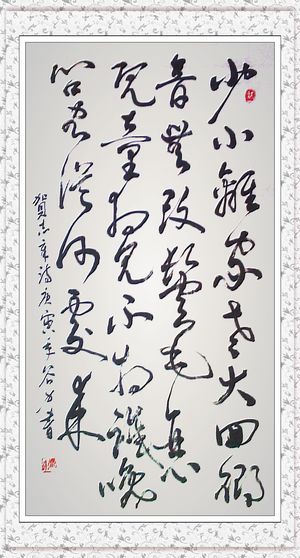 少小離家老大回鄉
音無改鬢毛衰
兒童相見不相識咲
問客從何處來
賀志章詩庚寅年谷書